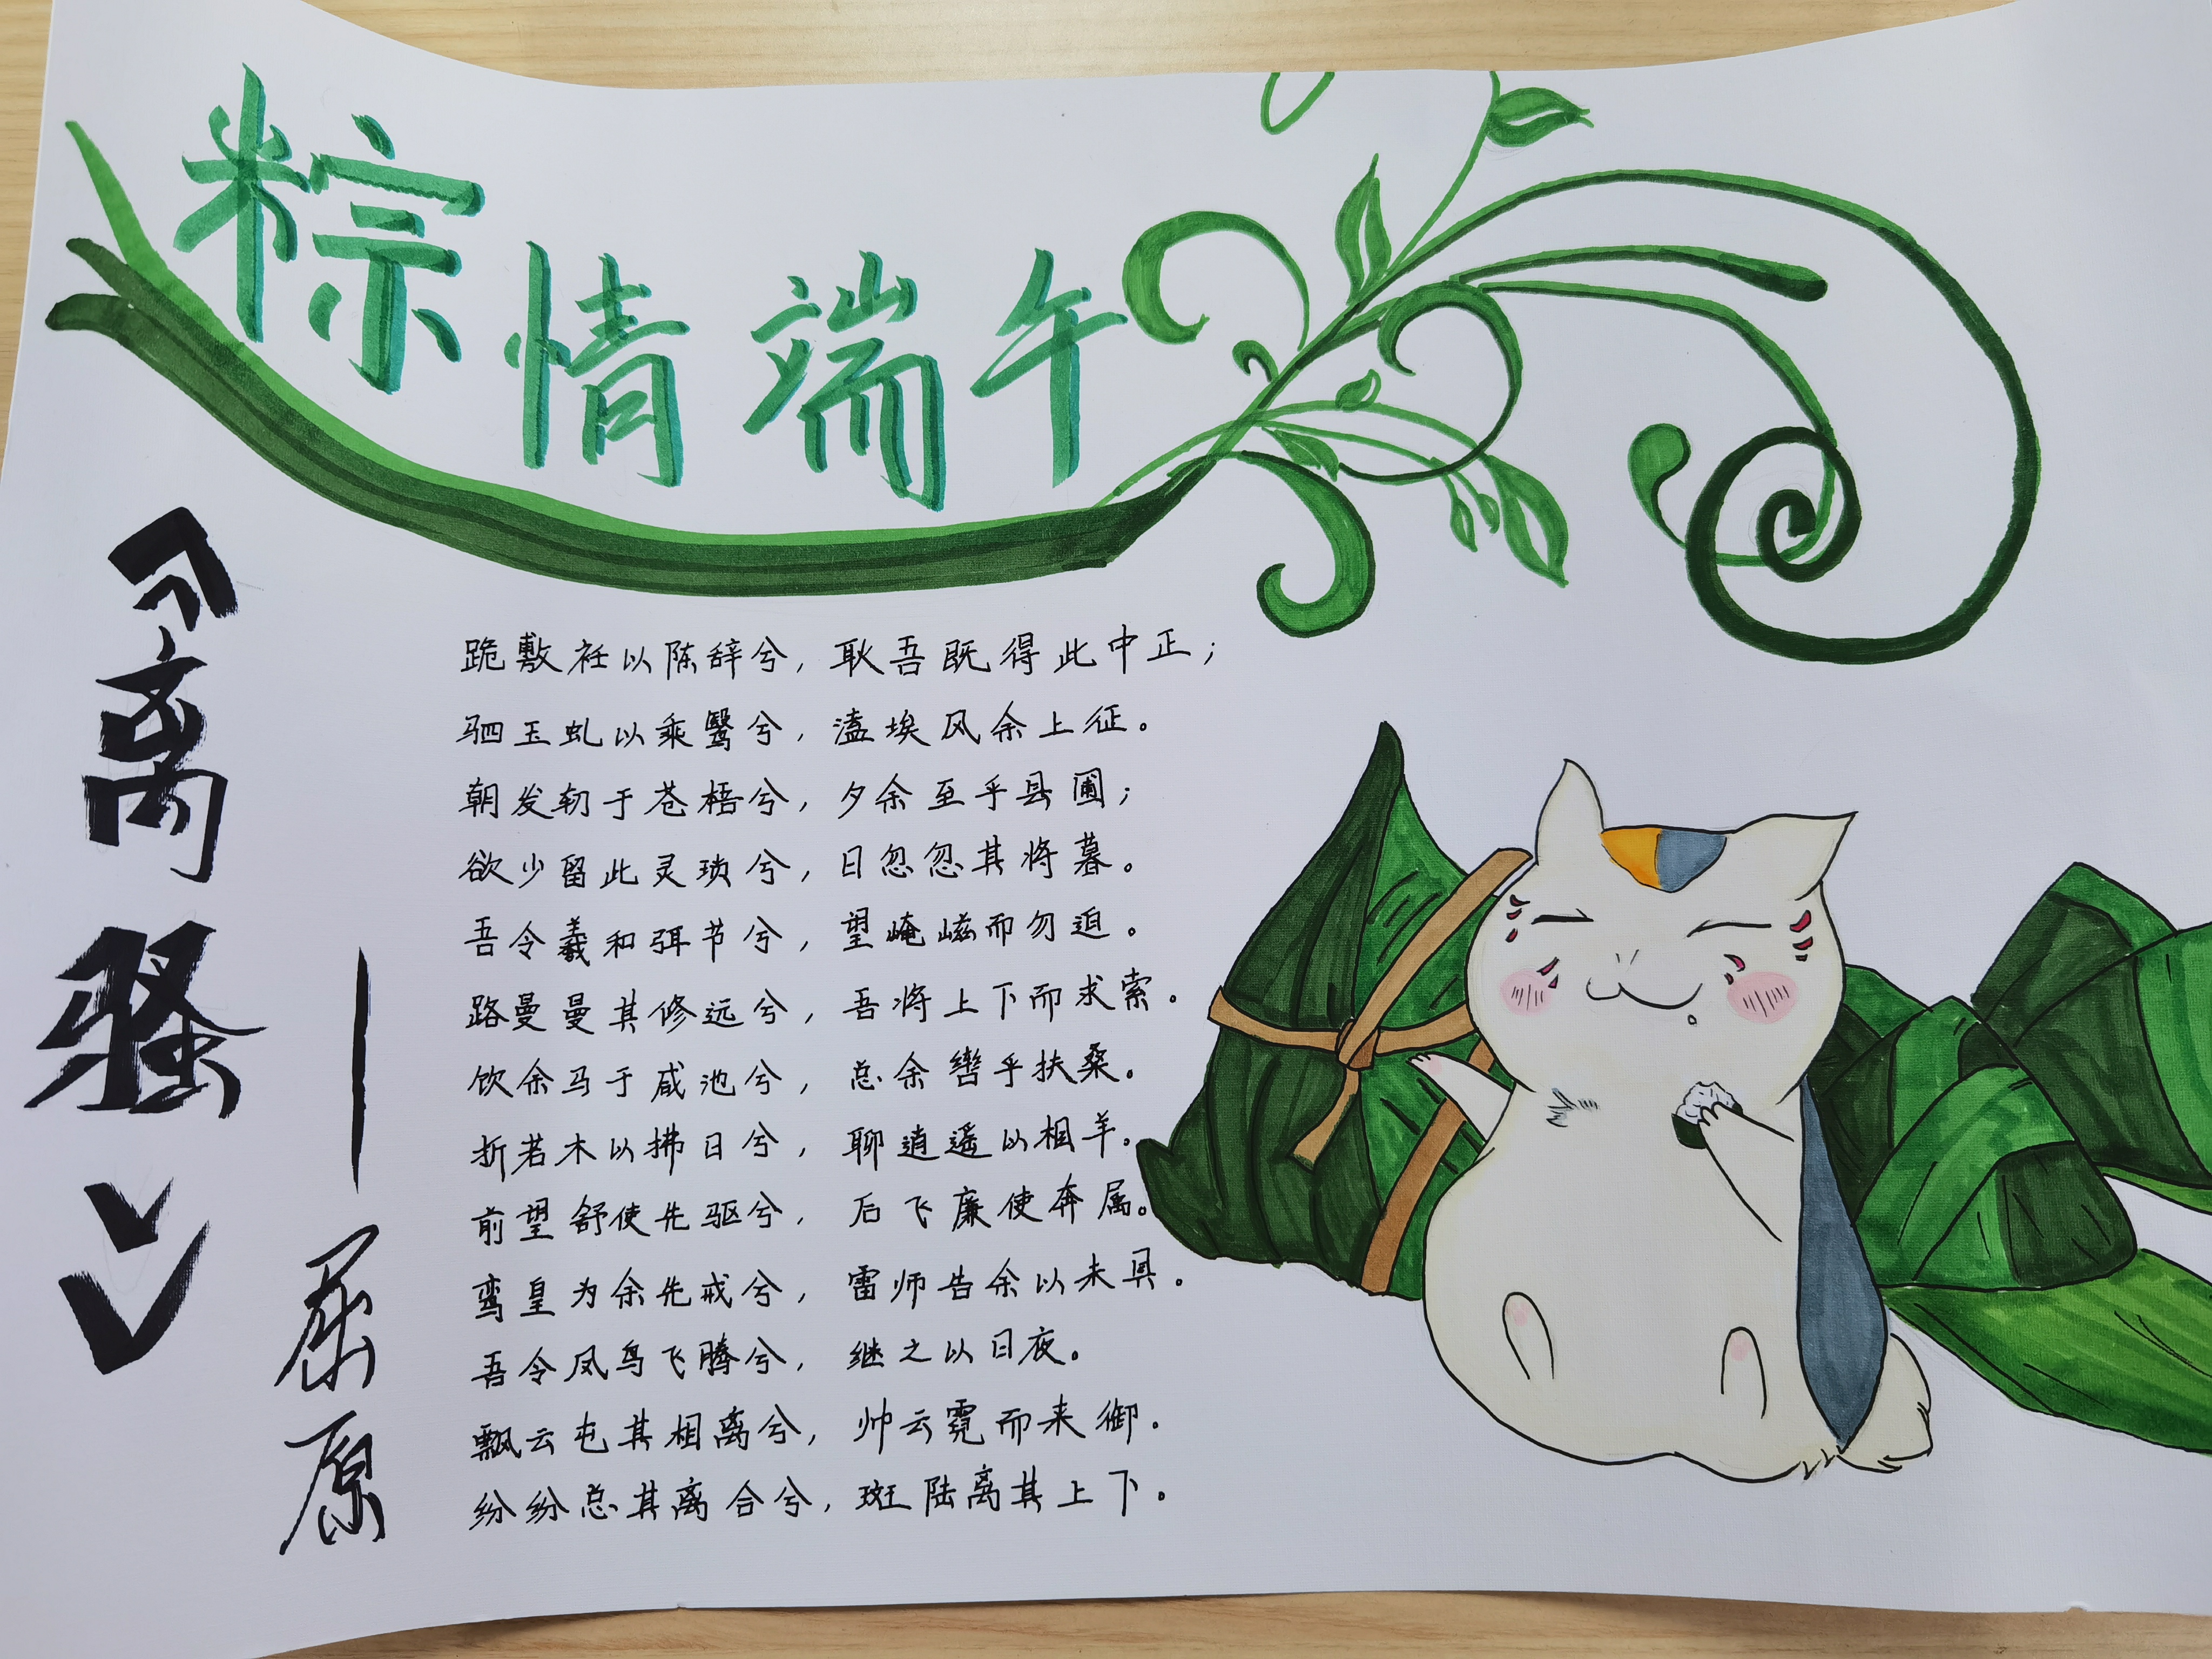 粽情端午
《离骚》
——屈原
跪敷衽以陈辞兮，耿吾既得此中正；
驷玉虬以乘鹥兮，溘埃风余上征。
朝发轫于苍梧兮，夕余至乎县圃；
欲少留此灵琐兮，日忽忽其将暮。
吾令羲和弭节兮，望崦嵫而勿迫。
路曼曼其修远兮，吾将上下而求索。
饮余马于咸池兮，总余辔乎扶桑。
折若木以拂日兮，聊逍遥以相羊。
前望舒使先驱兮，后飞廉使奔属。
鸾皇为余先戒兮，雷师告余以未具。
吾令凤鸟飞腾兮，继之以日夜。
飘云屯其相离兮，帅云霓而来御。
纷纷总其离合兮，斑陆离其上下。